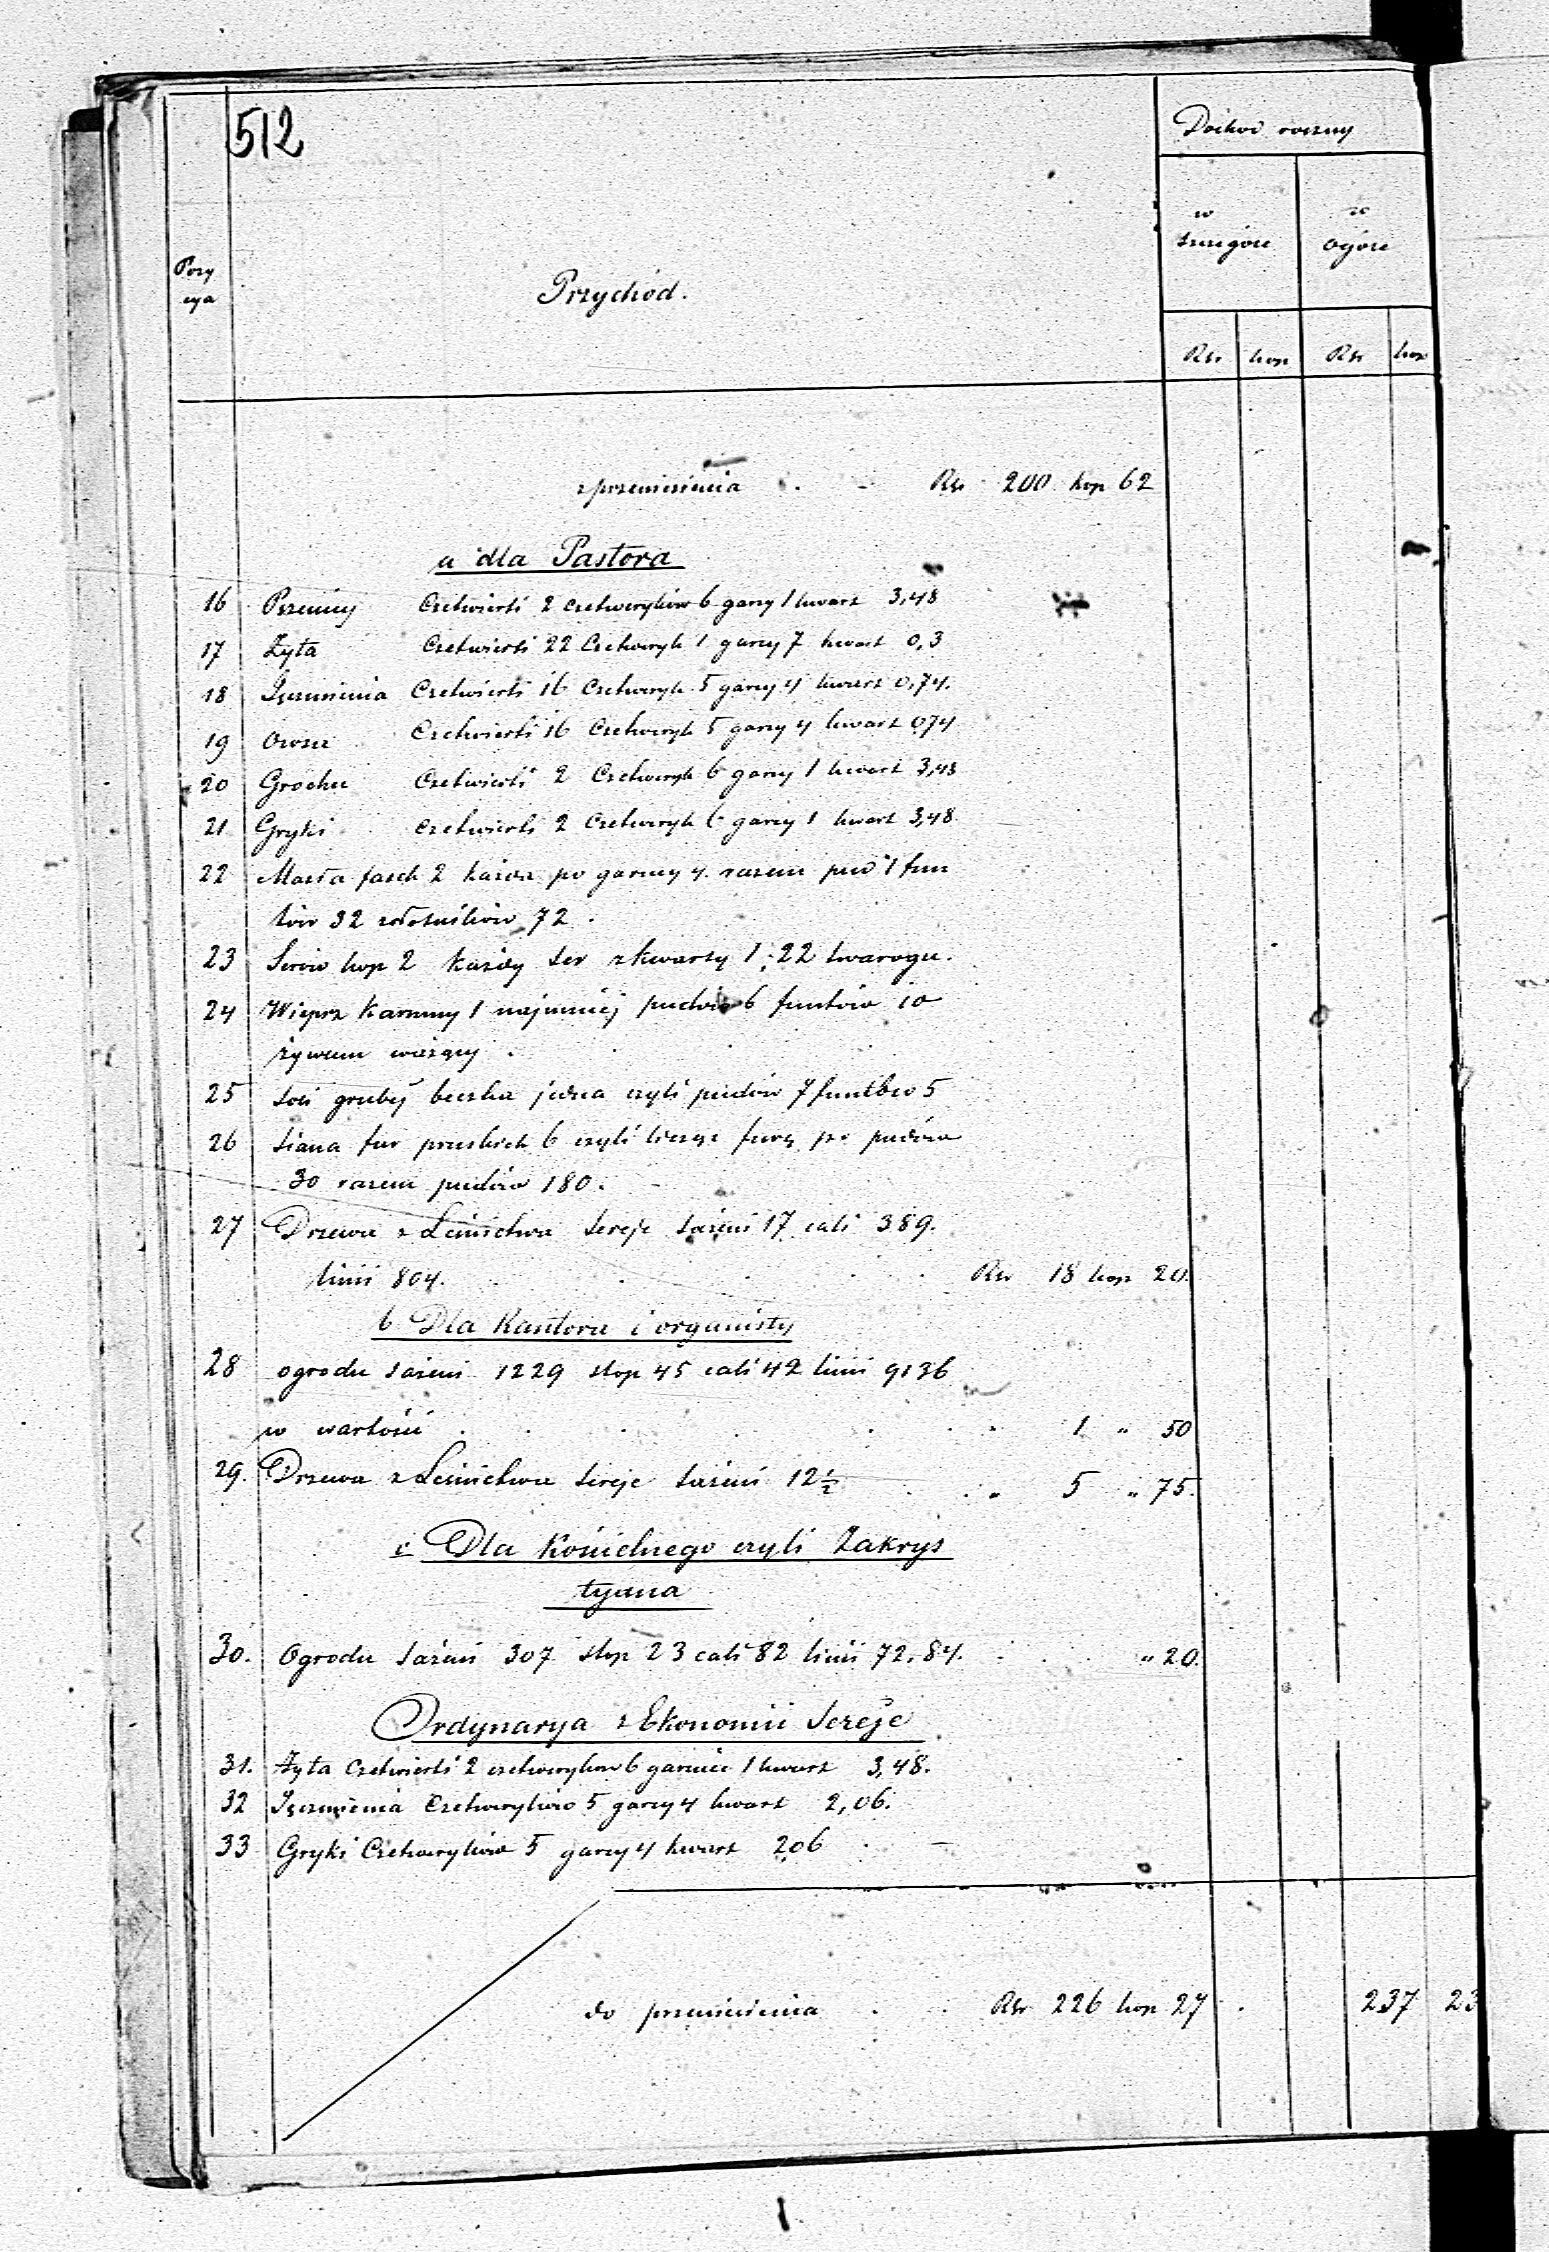 512
Dochód roczny
w szczególe
w ogóle
Pozycya
Przychód.
Rsr kop Rsr kop
z przeniesienia . . Rsr 200 kop 62
a dla Pastora
16 Pszenicy Czetwierti 2 czetweryków 6 garcy 1 kwart 3,48
17 Żyta Czetwierti 22 Czetweryk 1 garcy 7 kwart 0,3
18 Jęczmienia Czetwierti 16 Czetweryk 5 garcy 4 kwart 0,74.
19 Owsa Czetwierti 16 Czetweryk 5 garcy 4 kwart 074
20 Grochu Czetwierti 2 Czetweryk 6 garcy 1 kwart 3,48
21 Gryki Czetwierti 2 Czetweryk 6 garcy 1 kwart 3,48
22 Masła fasek 2 każda po garncy 4. razem pud 1 fun
tów 32 zołotników 72.
23 Serów kop 2 każdy ser z kwarty 1,22 twarogu.
24 Wieprz karmny 1 najmniej pudów 6 funtów 10
żywcem ważący .
25 soli grubej beczka jedna czyli pudów 7 funtów 5
26 siana fur pruskich 6 czyli licząc furę po pudów
30 razem pudów 180.
27 Drzewa z Leśnictwa Sereje sążeni 17 cali 389.
linii 804. . . . . Rsr 18 kop 20.
b Dla Kantora i organisty
28 ogrodu sążeni 1229 stop 45 cali 42 linii 9136
w wartości . . . . . . " 1 " 50
29. Drzewa z Leśnictwa Sereje sążeni 12 1/2 . . " 5 " 75.
c Dla Kościelnego czyli Zakrys
tyana
30. Ogrodu sążeni 307 stop 23 cali 82 linii 72,84. . . " 20.
Ordynarya z Ekonomii Sereje
31. Żyta Czetwierti 2 czetweryków 6 garniec 1 kwart 3,48.
32 Jęczmienia Czetweryków 5 garcy 4 kwart 2,06.
33 Gryki Czetweryków 5 garcy 4 kwart 2,06 .
do przeniesienia . . Rsr 226 kop 27 . 237 23